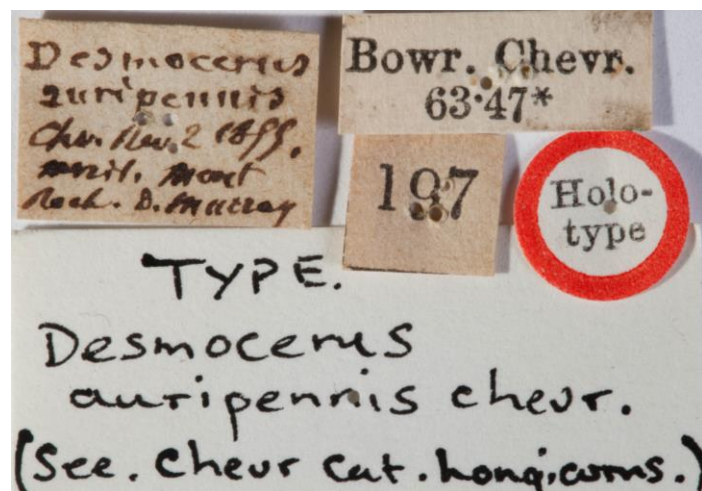 Desmocerus
auripennis
Chv. Rev. 2 1855.
mont
Roch. D. Murray
Bowr. Chevr.
63·47*
197
Holo-
type
TYPE.
Desmocerus
auripennis chevr.
(See. Chevr Cat. Longicorns.)